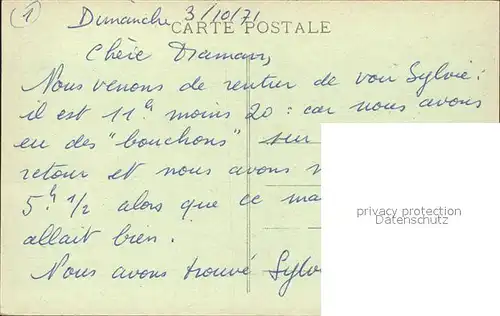 (1) Dimanche 3/10/71
CARTE POSTALE
Chère Maman,
Nous venons de rentrer de voir Sylvie :
il est 11h moins 20 : car nous avons
eu des "bouchons" sur
retour et nous avons
5h 1/2 alors que ce
allait bien.
Nous avons trouvé
privacy protection
Datenschutz